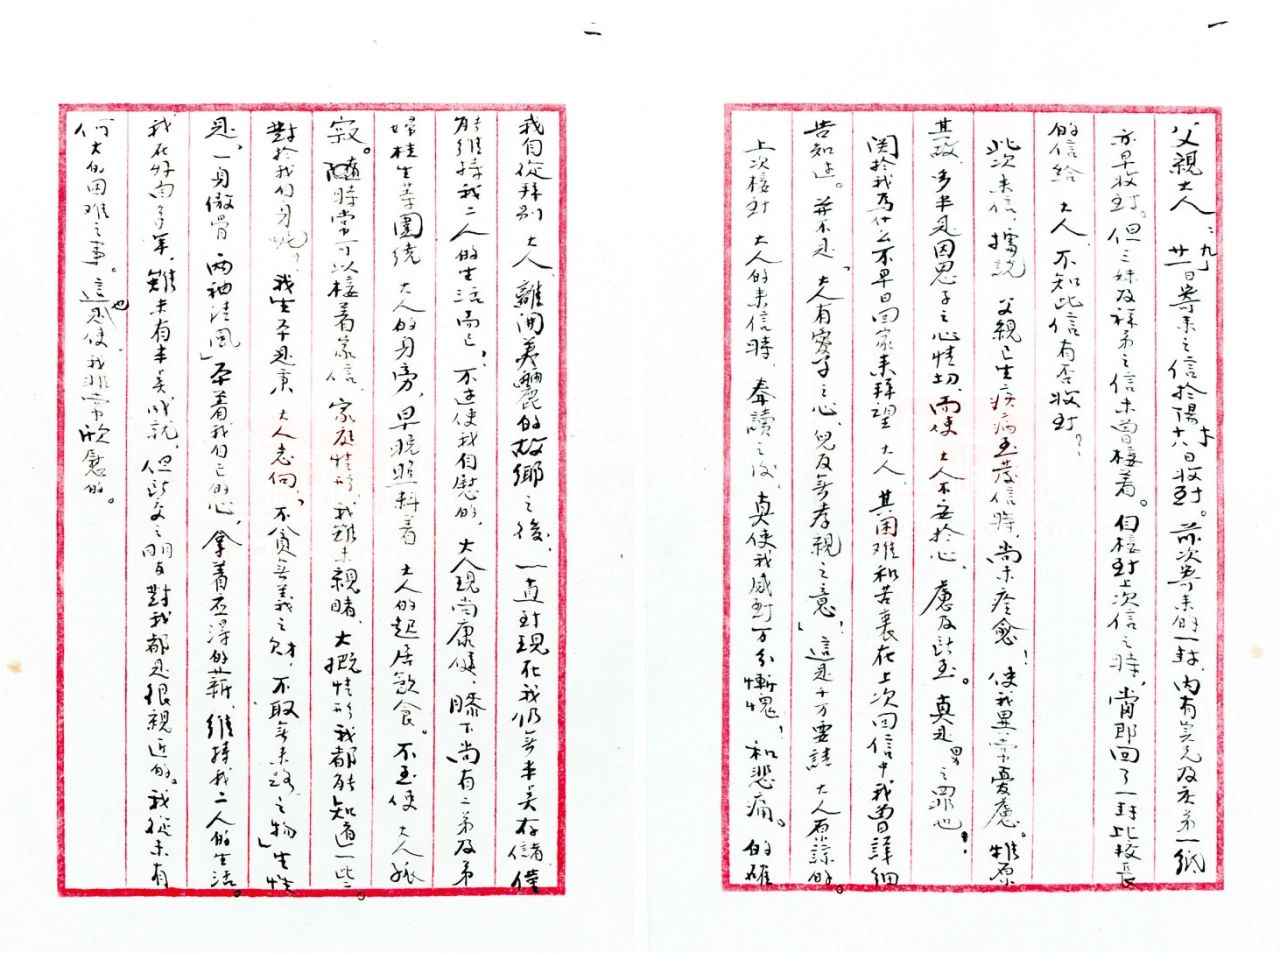 一
父親大人：九月廿一日寄來之信於陽十月十六日收到。前次寄來的一封，內有炎兄及底弟一紙
亦早收到。但三妹及祥弟之信未曾接着。但接到上次信之時，當即回了一封比較長
的信給　大人，不知此信有否收到？
此次來信，據說　父親已生疾病至發信時，尚未痊愈！使我異常憂慮。推原
其故，多半是因思子之心情切，而使　大人不安於心，慮及此至。真是男之罪也！
關於我爲什么不早日回家來拜望　大人，其困难和苦衷在上次回信中我曾詳細
告知过。並不是「大人有愛子之心，兒反無孝親之意」！這是千万要請　大人原諒的。
上次接到　大人的來信時，奉讀之後，真使我感到万分慚愧，和悲痛。的確
二
我自從拜别　大人，離開美麗的故鄉之後，一直到現在我仍無半美存儲，僅
能維持我二人的生活而已，不过使我自慰的，大人現尚康健，膝下尚有二弟及弟
婦桂生等圍绕　大人的身旁，早晚照料着　大人的起居飲食。不至使　大人孤
寂。隨時常可以接着家信，家庭情形，我雖未親睹，大概情形我都能知道一些。
對於我们身呢？我生平是秉　大人志向，「不貪無義之財，不取無來路之物」生性
是，「一身傲骨，兩袖清風」本着我自己的心，拿着应得的薪，維持我二人的生活。
我在外面多年，雖未有半美成就，但此交之朋友對我都是很親近的。我從未有
何大的困难之事。這也是使我非常欣慰的。